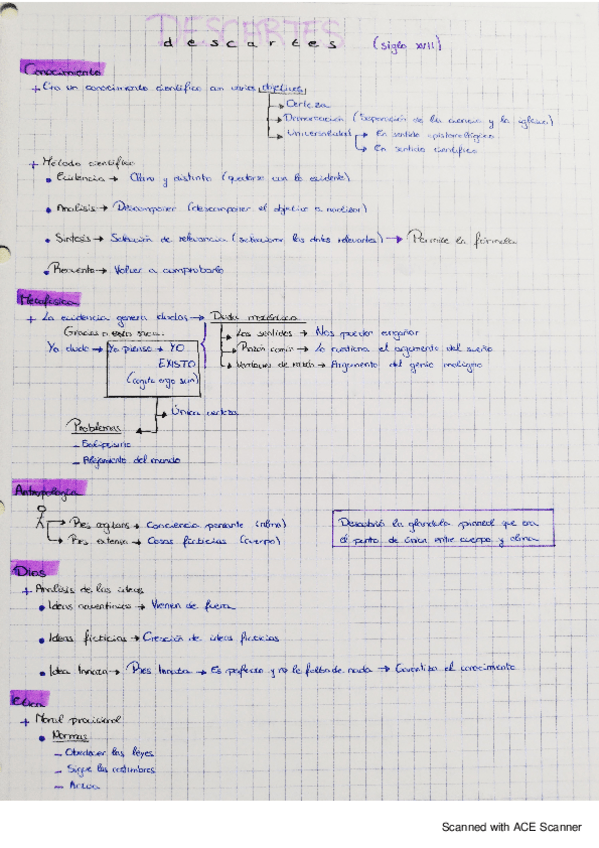 DESCARTES
descartes (siglo XVII)
Conocimiento
+ Crea un conocimiento científico con varios objetivos
→ Certeza
→ Demarcación (Separación de la ciencia y la iglesia)
→ Universalidad → En sentido epistemológico
→ En sentido científico
+ Método científico
• Evidencia → Claro y distinto (quedarse con lo evidente)
• Análisis → Descomponer (descomponer el objetivo a analizar)
• Síntesis → Selección de relevancia (seleccionar los datos relevantes) → Permite la fórmula
• Recuento → Volver a comprobarlo
Metafísica
+ La evidencia genera dudas → Duda metódica
Gracias a esto
→ Los sentidos → Nos pueden engañar
Yo dudo → Yo pienso → YO
→ Razón común → Lo cuestiona el argumento del sueño
EXISTO
→ Verdades de → Argumento del genio maligno
(cogito ergo sum)
→ Única certeza
Problemas
- Solipsismo
- Alejamiento del mundo
Antropología
→ Res cogitans → Conciencia pensante (alma)
→ Res extensa → Cosas (cuerpo)
Descubrió la glándula pineal que era
el punto de única entre cuerpo y alma
Dios
+ Análisis de las ideas
• Ideas → Vienen de fuera
• Ideas ficticias → Creación de ideas ficticias
• Idea Innata → Res Infinita → Es perfecto y no le falta de nada → Garantiza el conocimiento
Ética
+ Moral provisional
• Normas
- Obedecer las leyes
- Sigue las costumbres
Scanned with ACE Scanner